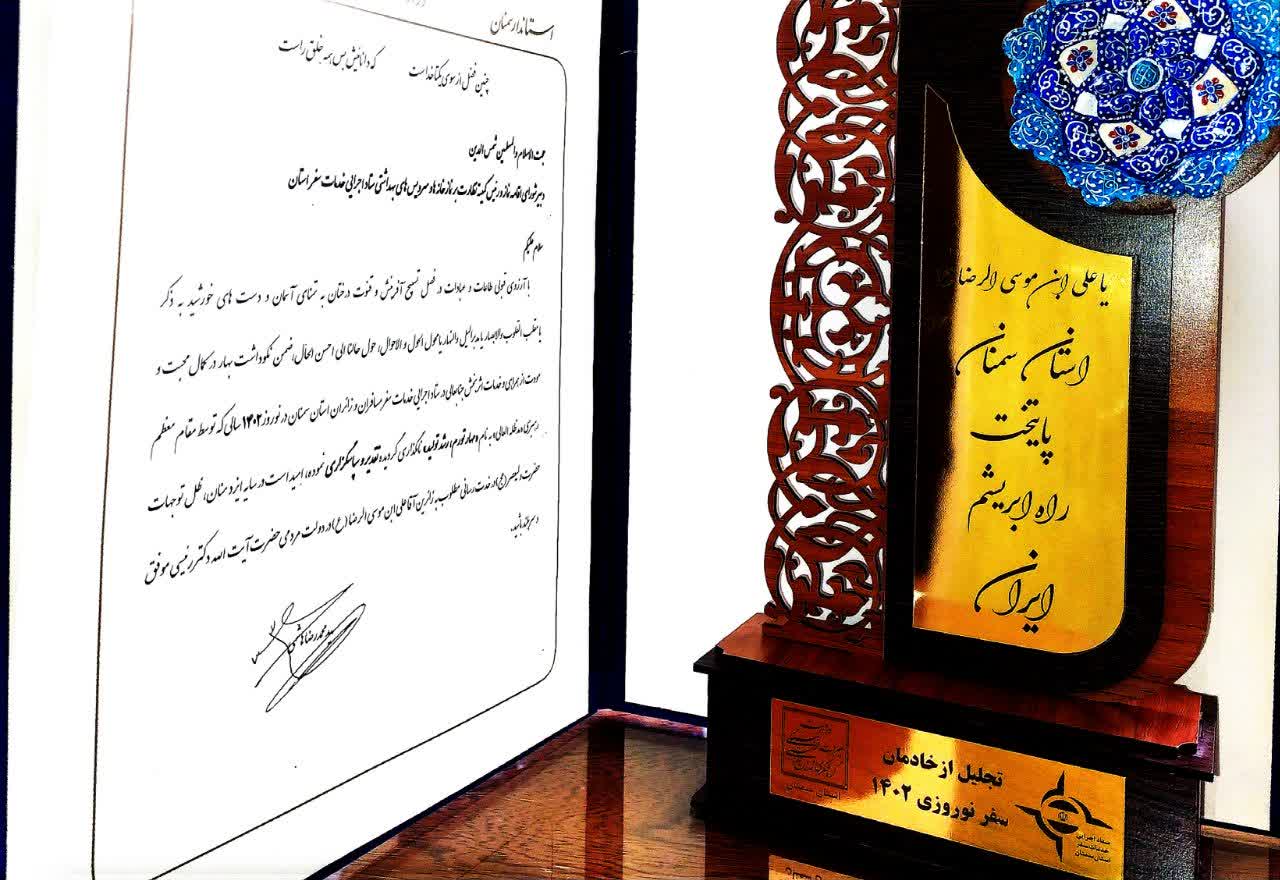 استاندار سمنان
چنین فضل از سوی یکتا خداست که دانایش بس همه خلق راست
حجت الاسلام والمسلمین شمس الدین
دبیر شورای اقامه نماز و رئیس کمیته نظارت بر نمازخانه ها و سرویس های بهداشتی ستاد اجرایی خدمات سفر استان
سلام علیکم
با آرزوی قبولی طاعات و عبادات در فصل تسبیح آفرینش و قنوت درختان به تمنای آسمان و دست های خورشید به ذکر
یا مقلب القلوب والابصار یا مدبر الیل والنهار یا محول الحول و الاحوال، حول حالنا الی احسن الحال، ضمن نکوداشت بهار در کمال محبت و
مودت از همراهی و خدمات اثربخش جنابعالی در ستاد اجرایی خدمات سفر مسافران و زائران استان سمنان در نوروز ۱۴۰۲ سالی که توسط مقام معظم
رهبری (مد ظله العالی) به نام «مهار تورم، رشد تولید» نامگذاری گردیده تقدیر و سپاسگزاری نموده، امید است در سایه ایزد منان، ظل توجهات
حضرت ولیعصر (عج) در خدمت رسانی مطلوب به زائرین آقا علی ابن موسی الرضا (ع) در دولت مردمی حضرت آیت الله دکتر رئیسی موفق
و سربلند باشید.
سید محمدرضا هاشمی
یا علی ابن موسی الرضا
استان سمنان
پایتخت
راه ابریشم
ایران
تجلیل از خادمان
سفر نوروزی ۱۴۰۲
ستاد اجرایی
خدمات سفر
استان سمنان
استان سمنان